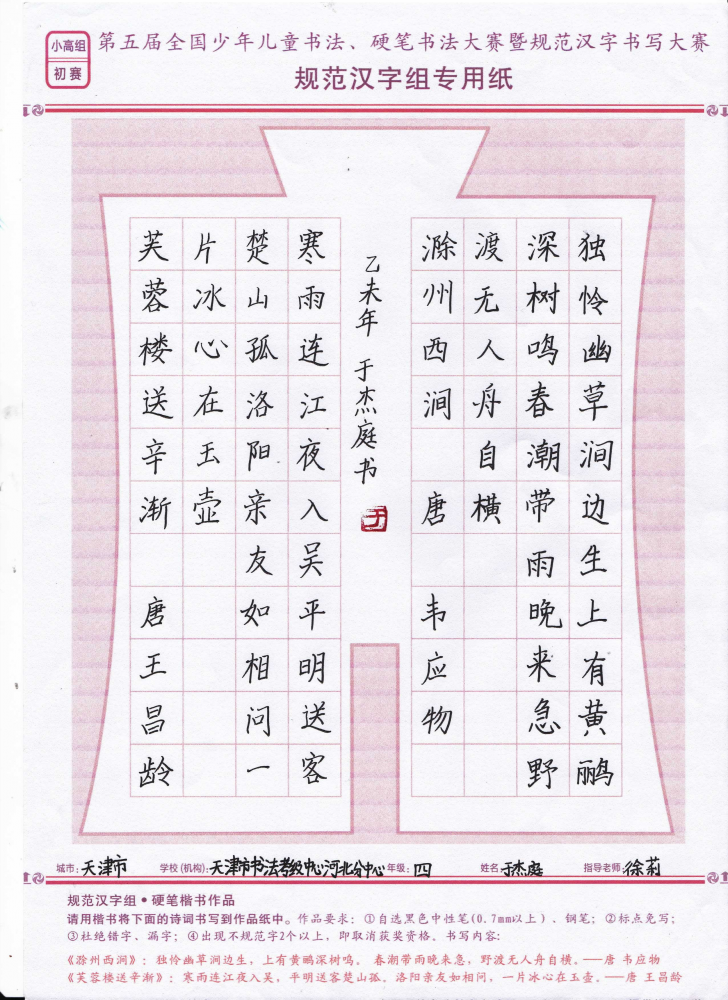 小高组
初赛
第五届全国少年儿童书法、硬笔书法大赛暨规范汉字书写大赛
规范汉字组专用纸
独怜幽草涧边生上有黄鹂
深树鸣春潮带雨晚来急野
渡无人舟自横
滁州西涧 唐 韦应物
乙未年 于杰庭书
于
寒雨连江夜入吴平明送客
楚山孤洛阳亲友如相问一
片冰心在玉壶
芙蓉楼送辛渐 唐王昌龄
城市:天津市 学校(机构):天津市书法考级中心河北分中心 年级:四 姓名:于杰庭 指导老师:徐莉
规范汉字组•硬笔楷书作品
请用楷书将下面的诗词书写到作品纸中。作品要求：①自选黑色中性笔(0.7mm以上)、钢笔；②标点免写；
③杜绝错字、漏字；④出现不规范字2个以上，即取消获奖资格。书写内容：
《滁州西涧》：独怜幽草涧边生，上有黄鹂深树鸣。春潮带雨晚来急，野渡无人舟自横。——唐 韦应物
《芙蓉楼送辛渐》：寒雨连江夜入吴，平明送客楚山孤。洛阳亲友如相问，一片冰心在玉壶。——唐 王昌龄